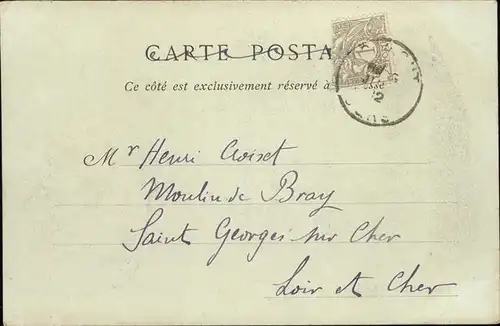 CARTE POSTA
Ce côté est exclusivement réservé à esse
Mr Henri Croizet
Moulin de Bray
Saint Georges sur Cher
Loir et Cher